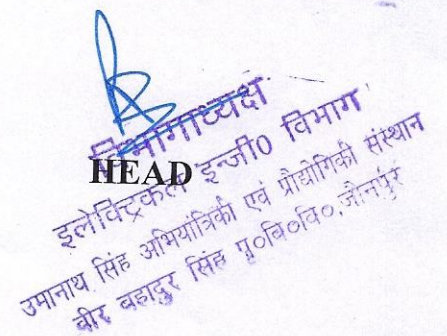 विभागाध्यक्ष
HEAD
इलेक्ट्रिकल इन्जी0 विभाग
उमानाथ सिंह अभियांत्रिकी एवं प्रौद्योगिकी संस्थान
वीर बहादुर सिंह पू०वि०वि०,जौनपुर